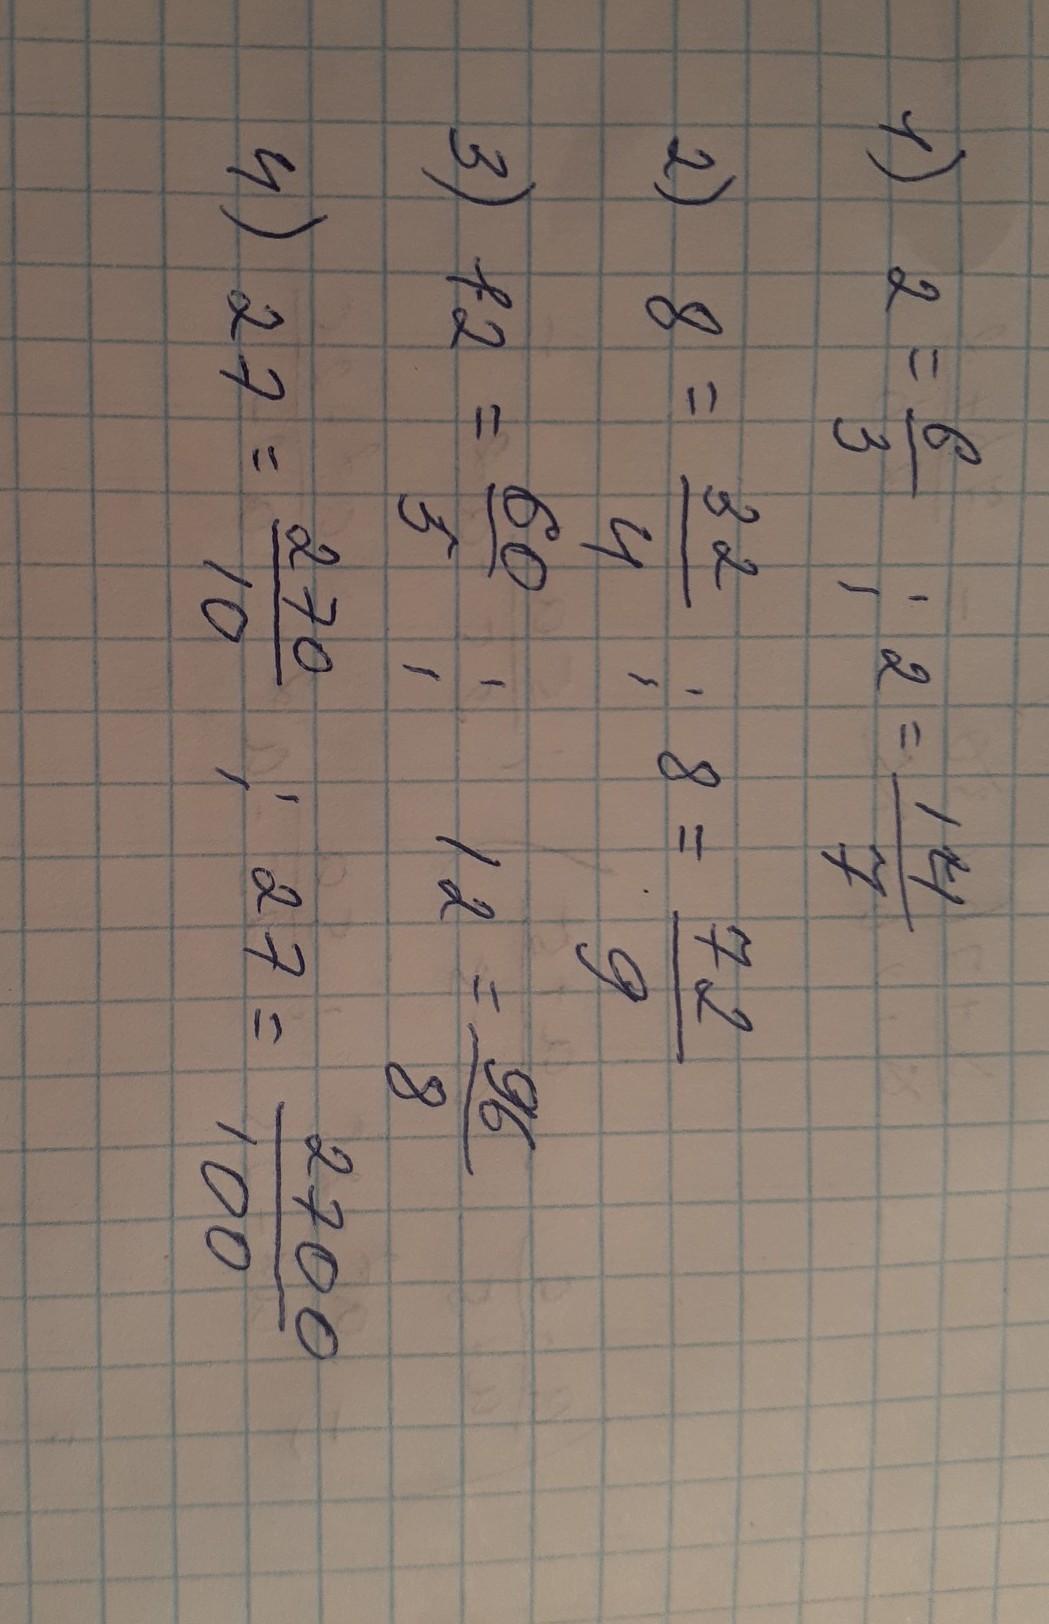 1) 2 = 6/3 ; 2 = 14/7
2) 8 = 32/4 ; 8 = 72/9
3) 12 = 60/5 ; 12 = 96/8
4) 27 = 270/10 ; 27 = 2700/100